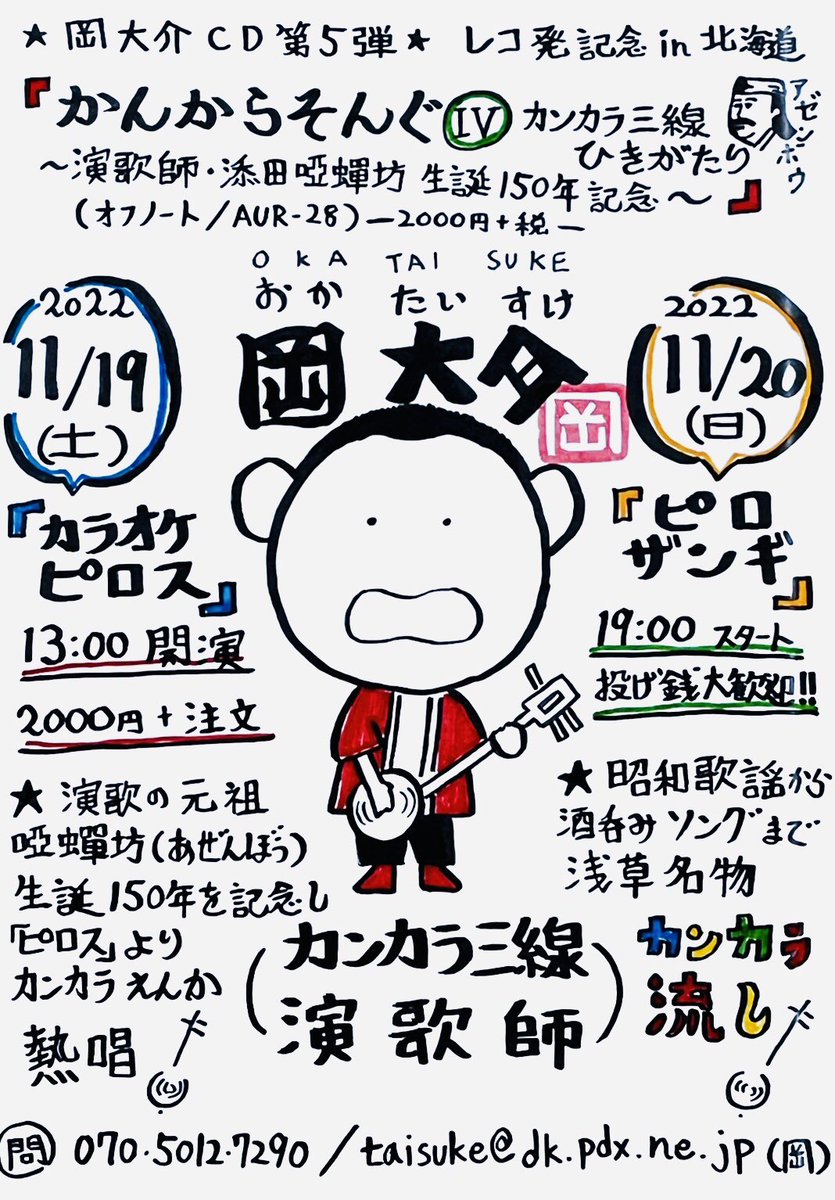 ★岡大介CD第5弾★ レコ発記念in北海道
『かんからそんぐⅣ カンカラ三線
ひきがたり
アゼンボウ
～演歌師・添田啞蟬坊 生誕150年記念～』
(オフノート/AUR-28)ー2000円+税ー
OKA TAI SUKE
おか たい すけ
岡大介
岡
2022
11/19
(土)
『カラオケ
ピロス』
13:00 開演
2000円+注文
★演歌の元祖
啞蟬坊(あぜんぼう)
生誕150年を記念し
「ピロス」より
カンカラえんか
熱唱
2022
11/20
(日)
『ピロ
ザンギ』
19:00 スタート
投げ銭大歓迎!!
★昭和歌謡から
酒呑みソングまで
浅草名物
カンカラ
流し
(カンカラ三線
演歌師)
問 070.5012.7290/taisuke@dk.pdx.ne.jp(岡)